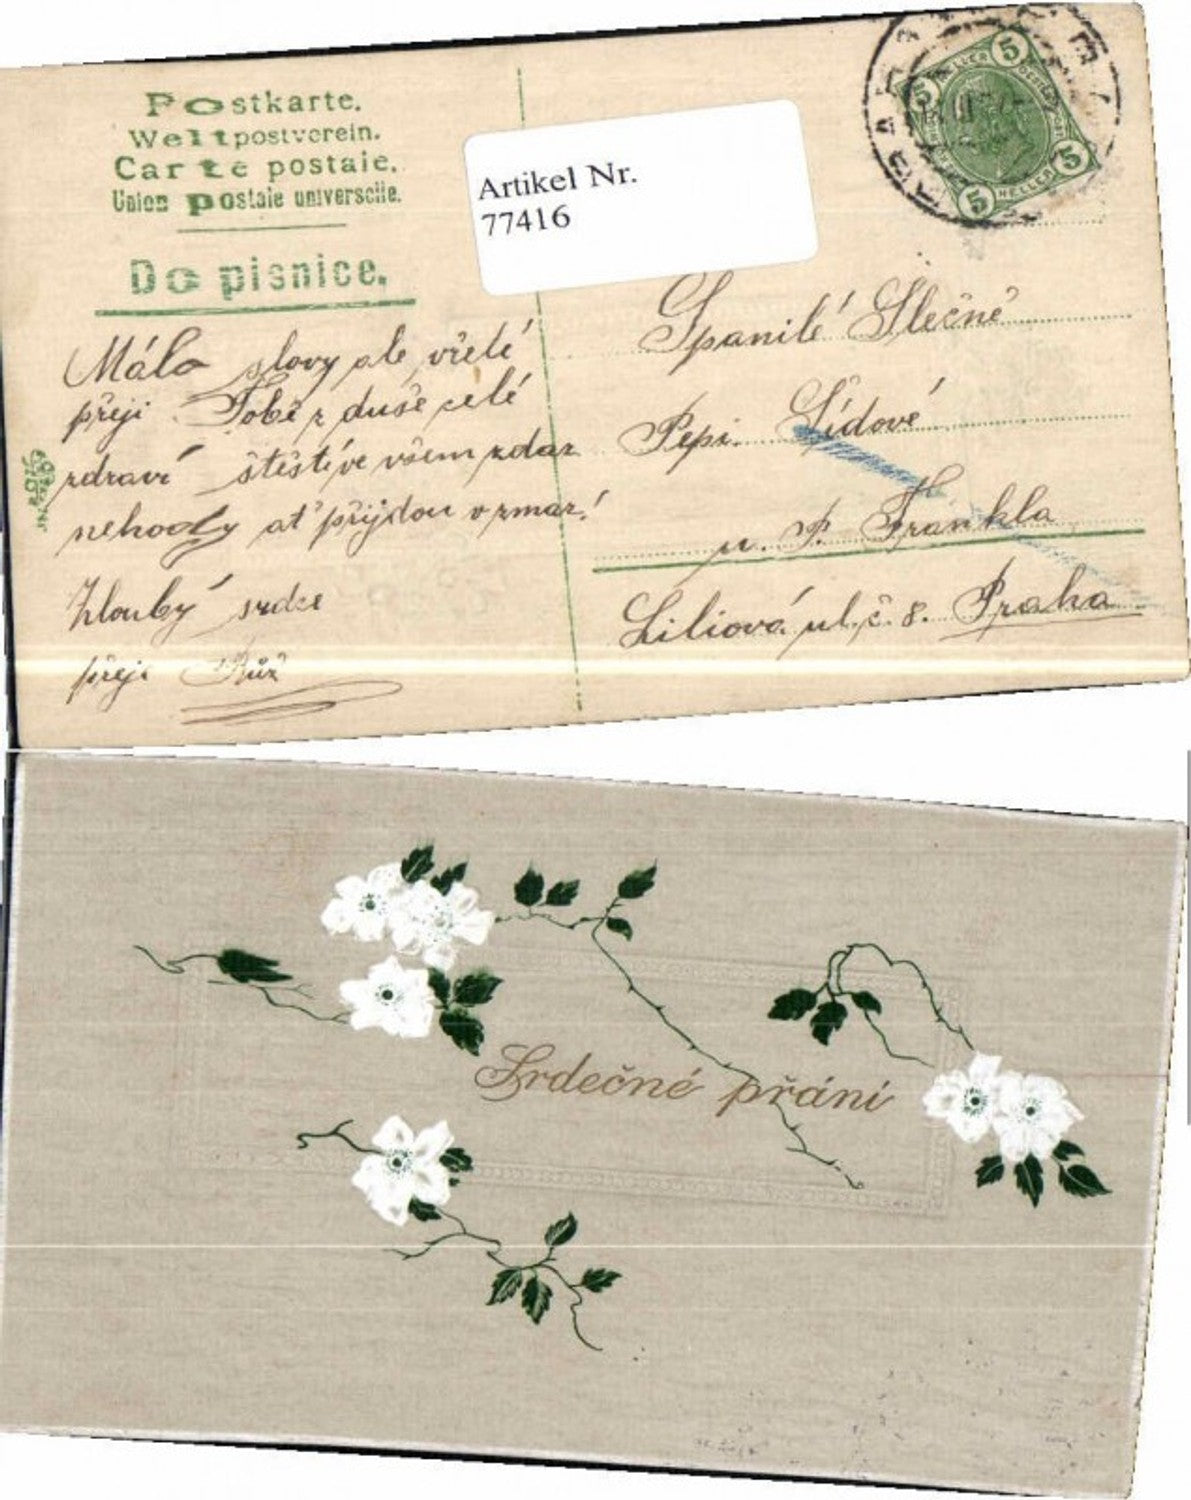 Postkarte.
Weltpostverein.
Carte postale.
Union postale universelle.
Do pisnice.
Artikel Nr.
77416
5
5
5
5
HELLER
Málo slovy ale vřelé
přeji Tobě z duše celé
zdraví štěstí ve všem zdar
nehody ať přijdou v zmar!
Hlouby srdce
přeje Růž
Spanilé Slečně
Pepi. Lídové
u. P. Frankla
Liliová ul. č. 8. Praha
Srdečné přání